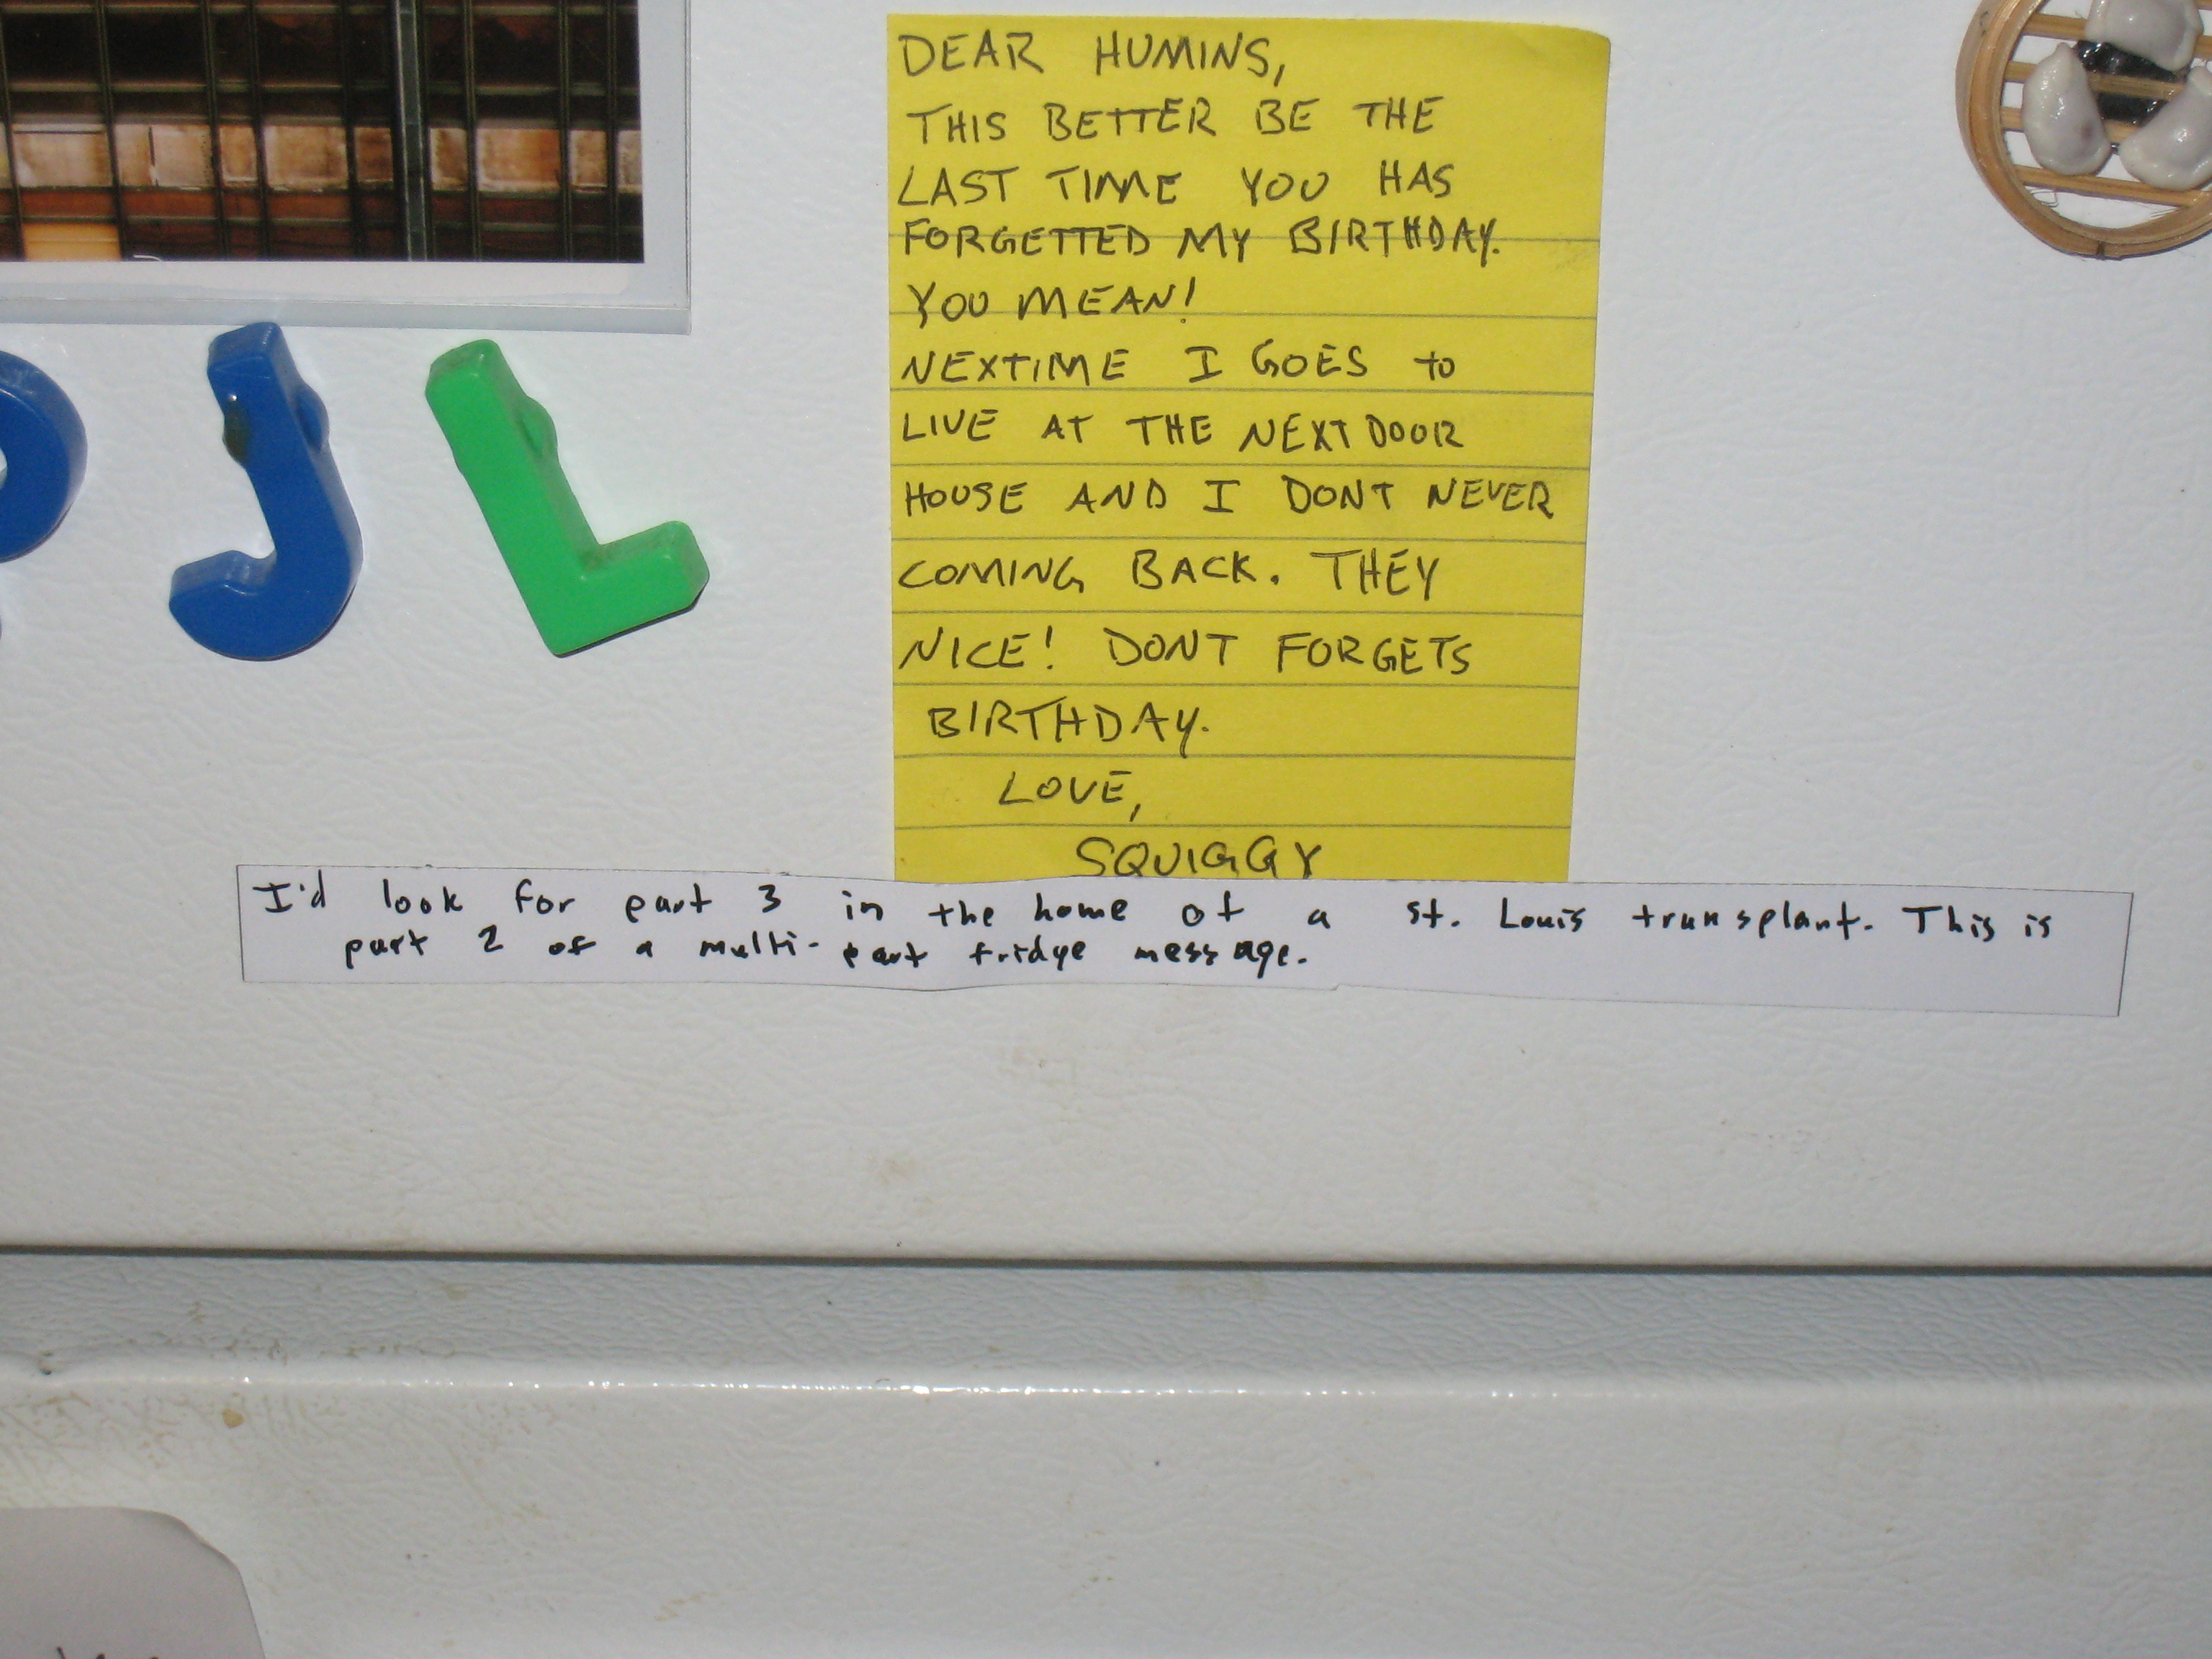 DEAR HUMINS,
THIS BETTER BE THE
LAST TIME YOU HAS
FORGETTED MY BIRTHDAY.
YOU MEAN!
NEXTIME I GOES to
LIVE AT THE NEXT DOOR
HOUSE AND I DONT NEVER
COMING BACK. THEY
NICE! DONT FORGETS
BIRTHDAY.
LOVE,
SQUIGGY
J L
I'd look for part 3 in the home of a St. Louis transplant. This is
part 2 of a multi-part fridge message.